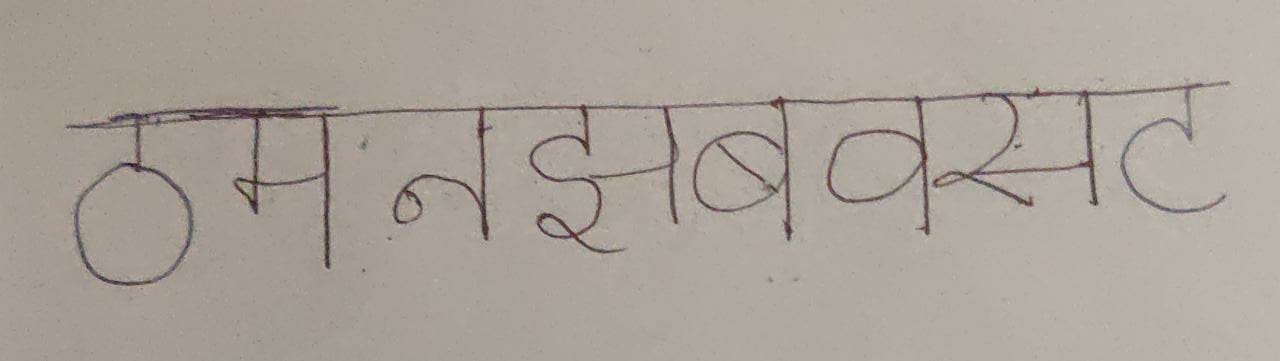 ठमनझबवसट